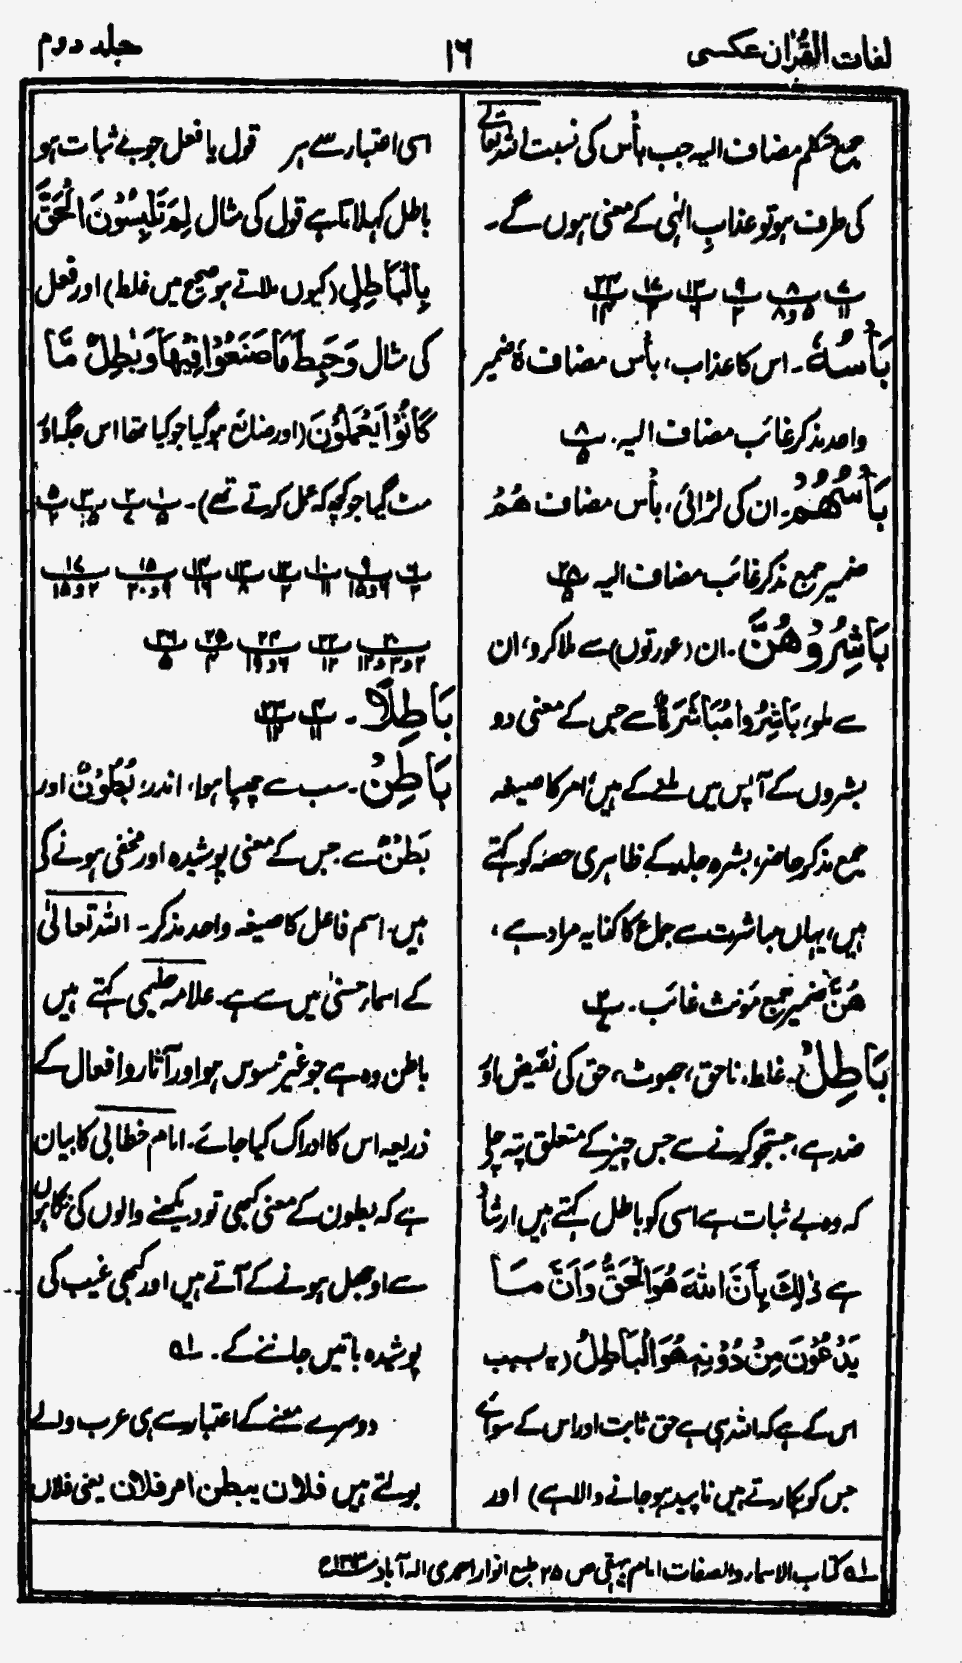 لغات القرآن عکسی
۱۶
جلد دوم
جمع متکلم مضاف الیہ جب بأس کی نسبت اللہ تعالےٰ
کی طرف ہو تو عذابِ الٰہی کے معنی ہوں گے۔
بَأْسُہٗ۔ اس کا عذاب، بأس مضاف ہٗ ضمیر
واحد مذکر غائب مضاف الیہ۔ پ ۸ ۵
بَأْسُهُمْ۔ ان کی لڑائی، بأس مضاف ھُمْ
ضمیر جمع مذکر غائب مضاف الیہ پ ۲۸ ۵
بَاشِرُوْهُنَّ۔ ان (عورتوں) سے ملا کرو، ان
سے ملو، بَاشِرُوا مُبَاشَرَةٌ سے جس کے معنی دو
بشروں کے آپس میں ملنے کے ہیں، امر کا صیغہ
جمع مذکر حاضر، بشرہ جلد کے ظاہری حصہ کو کہتے
ہیں، یہاں مباشرت سے جماع کا کنایہ مراد ہے،
ھُنَّ ضمیر جمع مؤنث غائب۔ پ ۲ ۷
بَاطِلٌ۔ غلط، ناحق، جھوٹ، حق کی نقیض اور
ضد ہے، جستجو کرنے سے جس چیز کے متعلق پتہ چلے
کہ وہ بے ثبات ہے اسی کو باطل کہتے ہیں ارشاد
ہے ذٰلِكَ بِأَنَّ اللهَ هُوَ الْحَقُّ وَأَنَّ مَا
يَدْعُوْنَ مِنْ دُوْنِهٖ هُوَ الْبَاطِلُ (یہ سبب
اس کے ہے کہ اللہ ہی ہے حق ثابت اور اس کے سوائے
جس کو پکارتے ہیں ناپید ہو جانے والا ہے) اور
اسی اعتبار سے ہر قول یا فعل جو بے ثبات ہو
باطل کہلاتا ہے قول کی مثال لِمَ تَلْبِسُوْنَ الْحَقَّ
بِالْبَاطِلِ (کیوں ملاتے ہو صحیح میں غلط) اور فعل
کی مثال وَحَبِطَ مَا صَنَعُوْا فِيْهَا وَبٰطِلٌ مَّا
كَانُوْا يَعْمَلُوْنَ (اور ضائع ہو گیا جو کیا تھا اس جگہ اور
مٹ گیا جو کچھ کہ عمل کرتے تھے)۔
بَاطِلًا۔ پ ۴ ۱۱ پ ۲۳ ۱۲
بَاطِنٌ۔ سب سے چھپا ہوا، اندر، بُطُوْنٌ اور
بَطْنٌ سے جس کے معنی پوشیدہ اور مخفی ہونے کے
ہیں، اسم فاعل کا صیغہ واحد مذکر۔ اللہ تعالیٰ
کے اسماءِ حسنٰی میں سے ہے۔ علامہ حلیمی کہتے ہیں
باطن وہ ہے جو غیر محسوس ہو اور آثار و افعال کے
ذریعہ اس کا ادراک کیا جائے۔ امام خطابی کا بیان
ہے کہ بطون کے معنی کبھی تو دیکھنے والوں کی نگاہوں
سے اوجھل ہونے کے آتے ہیں اور کبھی غیب کی
پوشیدہ باتیں جاننے کے۔ ۵۱
دوسرے معنے کے اعتبار سے ہی عرب والے
بولتے ہیں فلان یبطن امر فلان یعنی فلاں
۵۱ کتاب الاسماء والصفات امام بیہقی ص ۲۵ طبع انوار احمدی الہ آباد ۱۳۱۳ھ